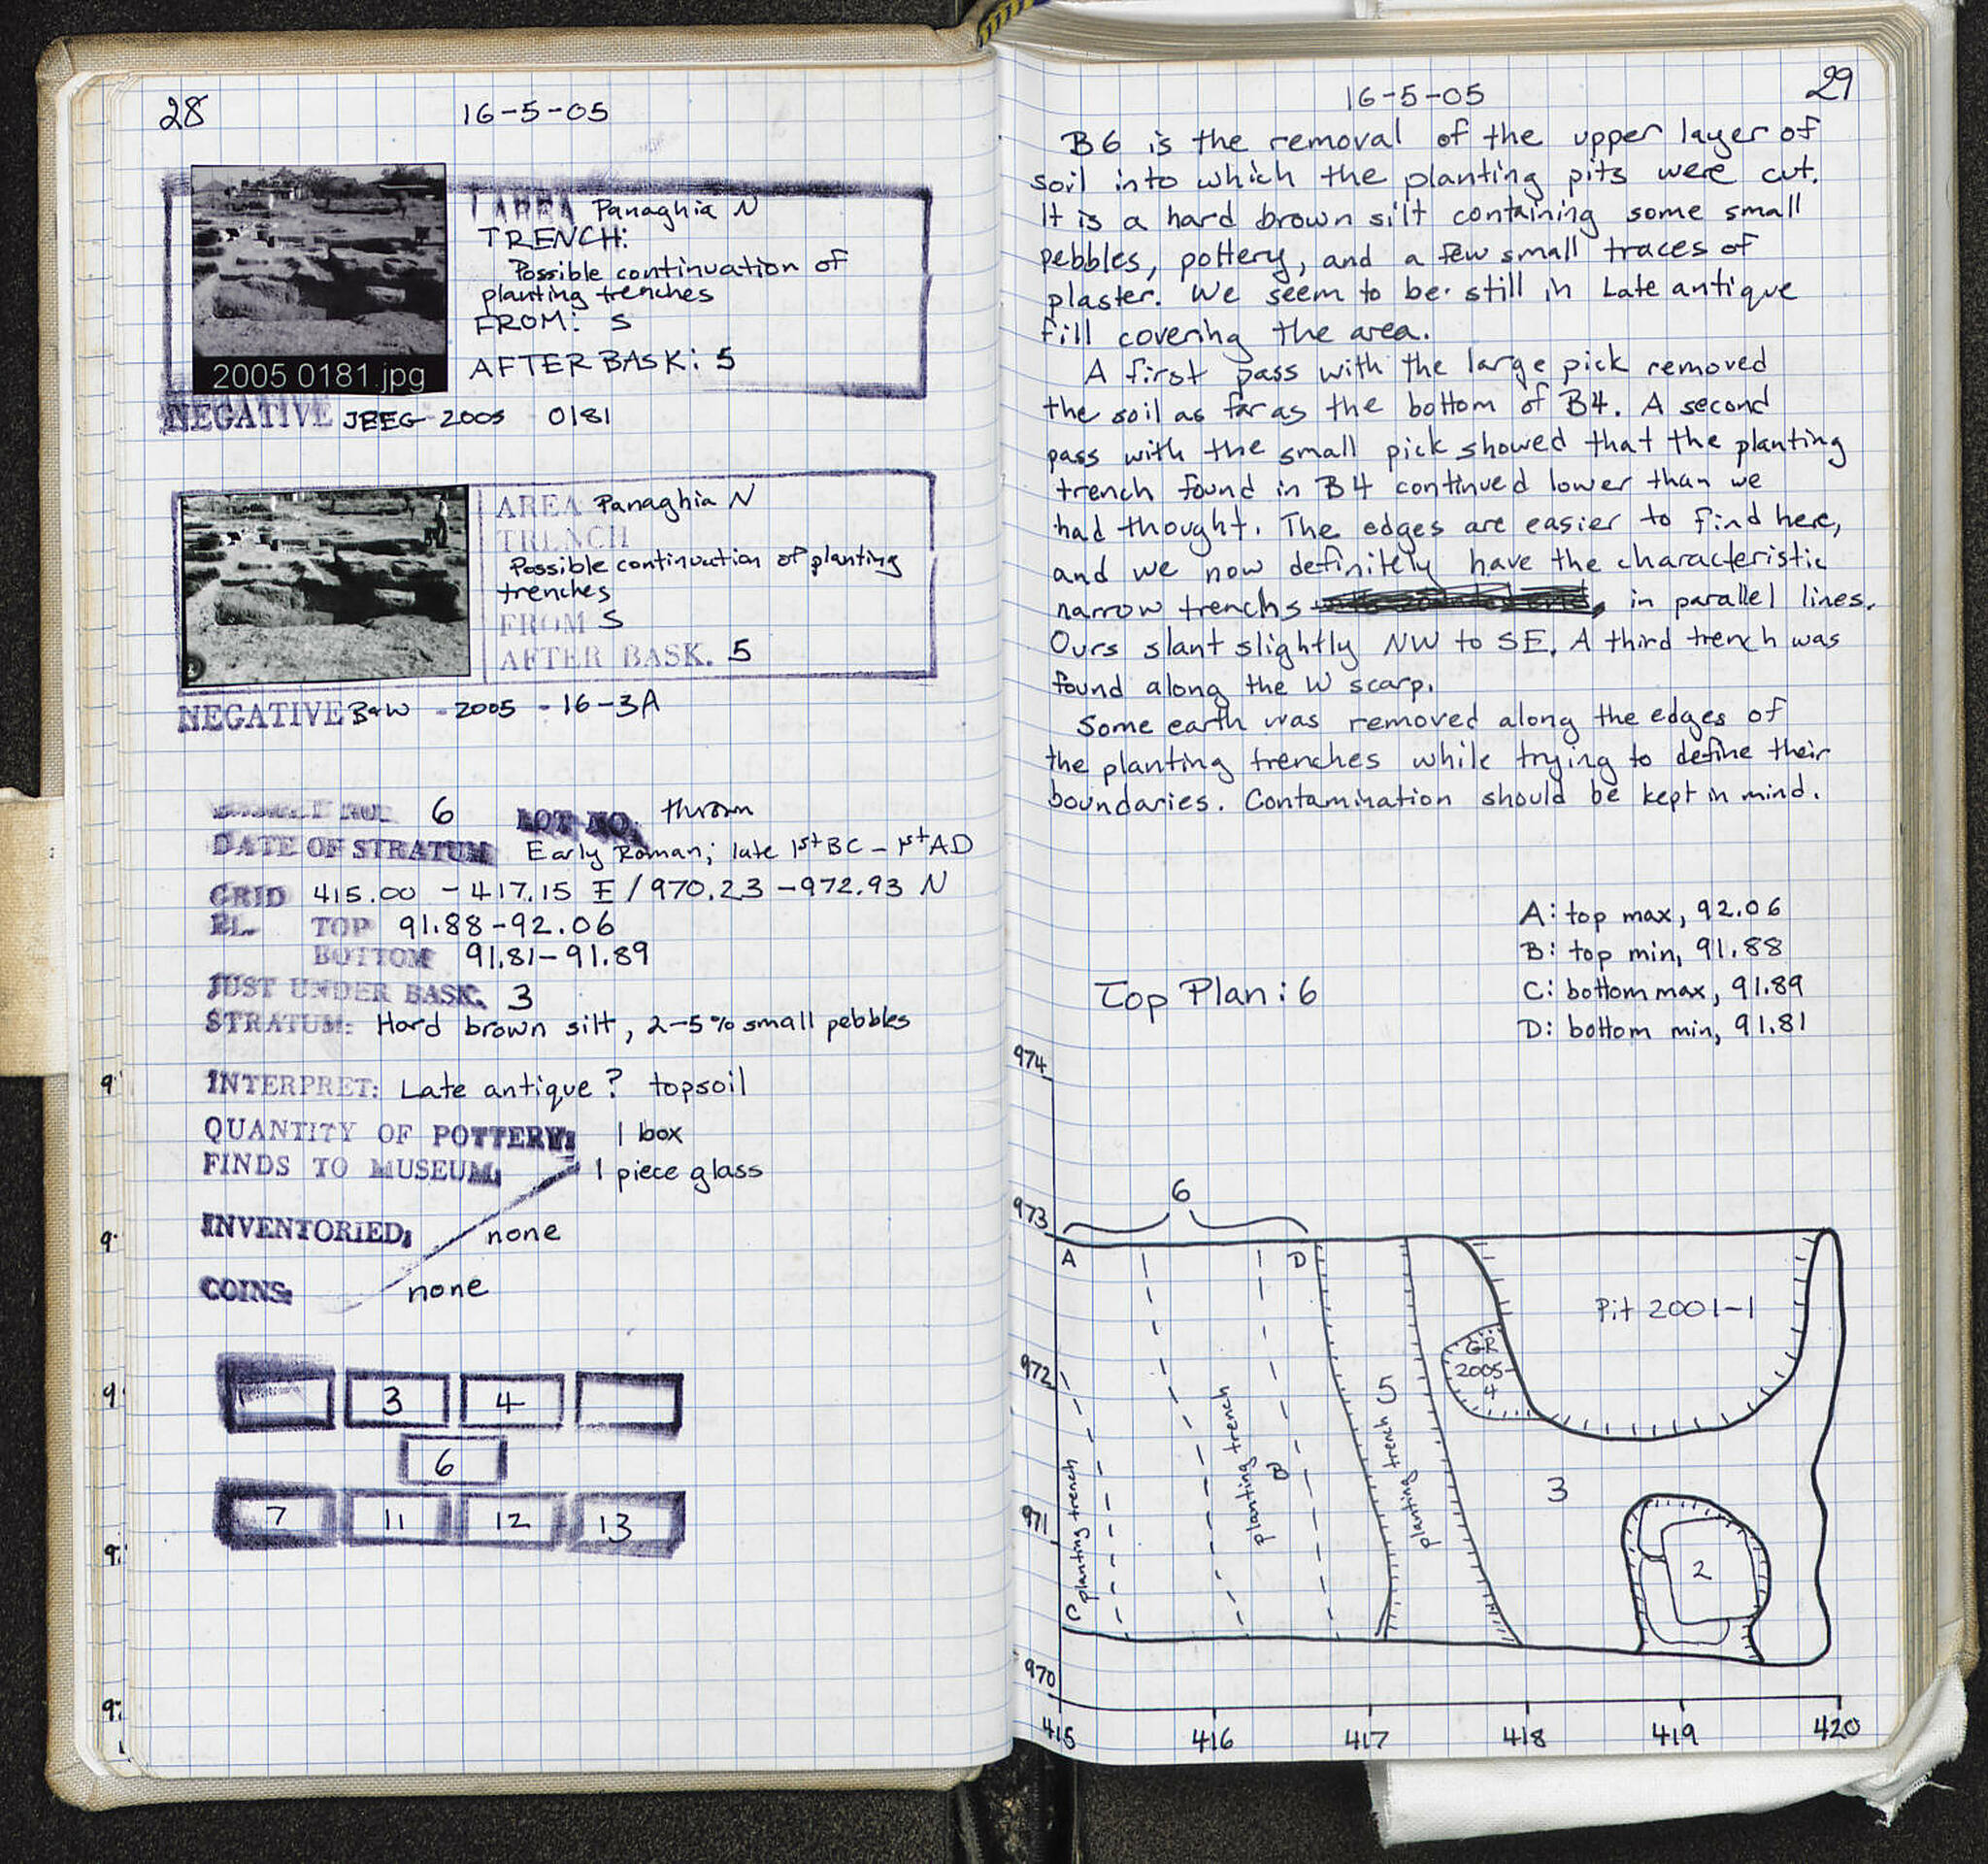 28
16-5-05
AREA Panaghia N
TRENCH:
Possible continuation of
planting trenches
FROM: S
AFTER BASK: 5
2005 0181.jpg
NEGATIVE JEEG-2005 0181
AREA Panaghia N
TRENCH
Possible continuation of planting
trenches
FROM S
AFTER BASK. 5
NEGATIVE B&W - 2005 - 16-3A
6 LOT NO. thrown
DATE OF STRATUM Early Roman; late 1st BC - 1st AD
GRID 415.00 - 417.15 E / 970.23 - 972.93 N
EL. TOP 91.88-92.06
BOTTOM 91.81-91.89
JUST UNDER BASK. 3
STRATUM: Hard brown silt, 2-5% small pebbles
INTERPRET: Late antique? topsoil
QUANTITY OF POTTERY: 1 box
FINDS TO MUSEUM: 1 piece glass
INVENTORIED: none
COINS: none
3 4
6
7 11 12 13
16-5-05
29
B6 is the removal of the upper layer of
soil into which the planting pits were cut.
It is a hard brown silt containing some small
pebbles, pottery, and a few small traces of
plaster. We seem to be still in Late antique
fill covering the area.
A first pass with the large pick removed
the soil as far as the bottom of B4. A second
pass with the small pick showed that the planting
trench found in B4 continued lower than we
had thought. The edges are easier to find here,
and we now definitely have the characteristic
narrow trenchs in parallel lines.
Ours slant slightly NW to SE. A third trench was
found along the W scarp.
Some earth was removed along the edges of
the planting trenches while trying to define their
boundaries. Contamination should be kept in mind.
A: top max, 92.06
B: top min, 91.88
C: bottom max, 91.89
D: bottom min, 91.81
Top Plan: 6
974
973
972
971
970
6
A
D
Pit 2001-1
GR
2005-
4
5
planting trench
planting trench
B
planting trench
C
3
2
415 416 417 418 419 420